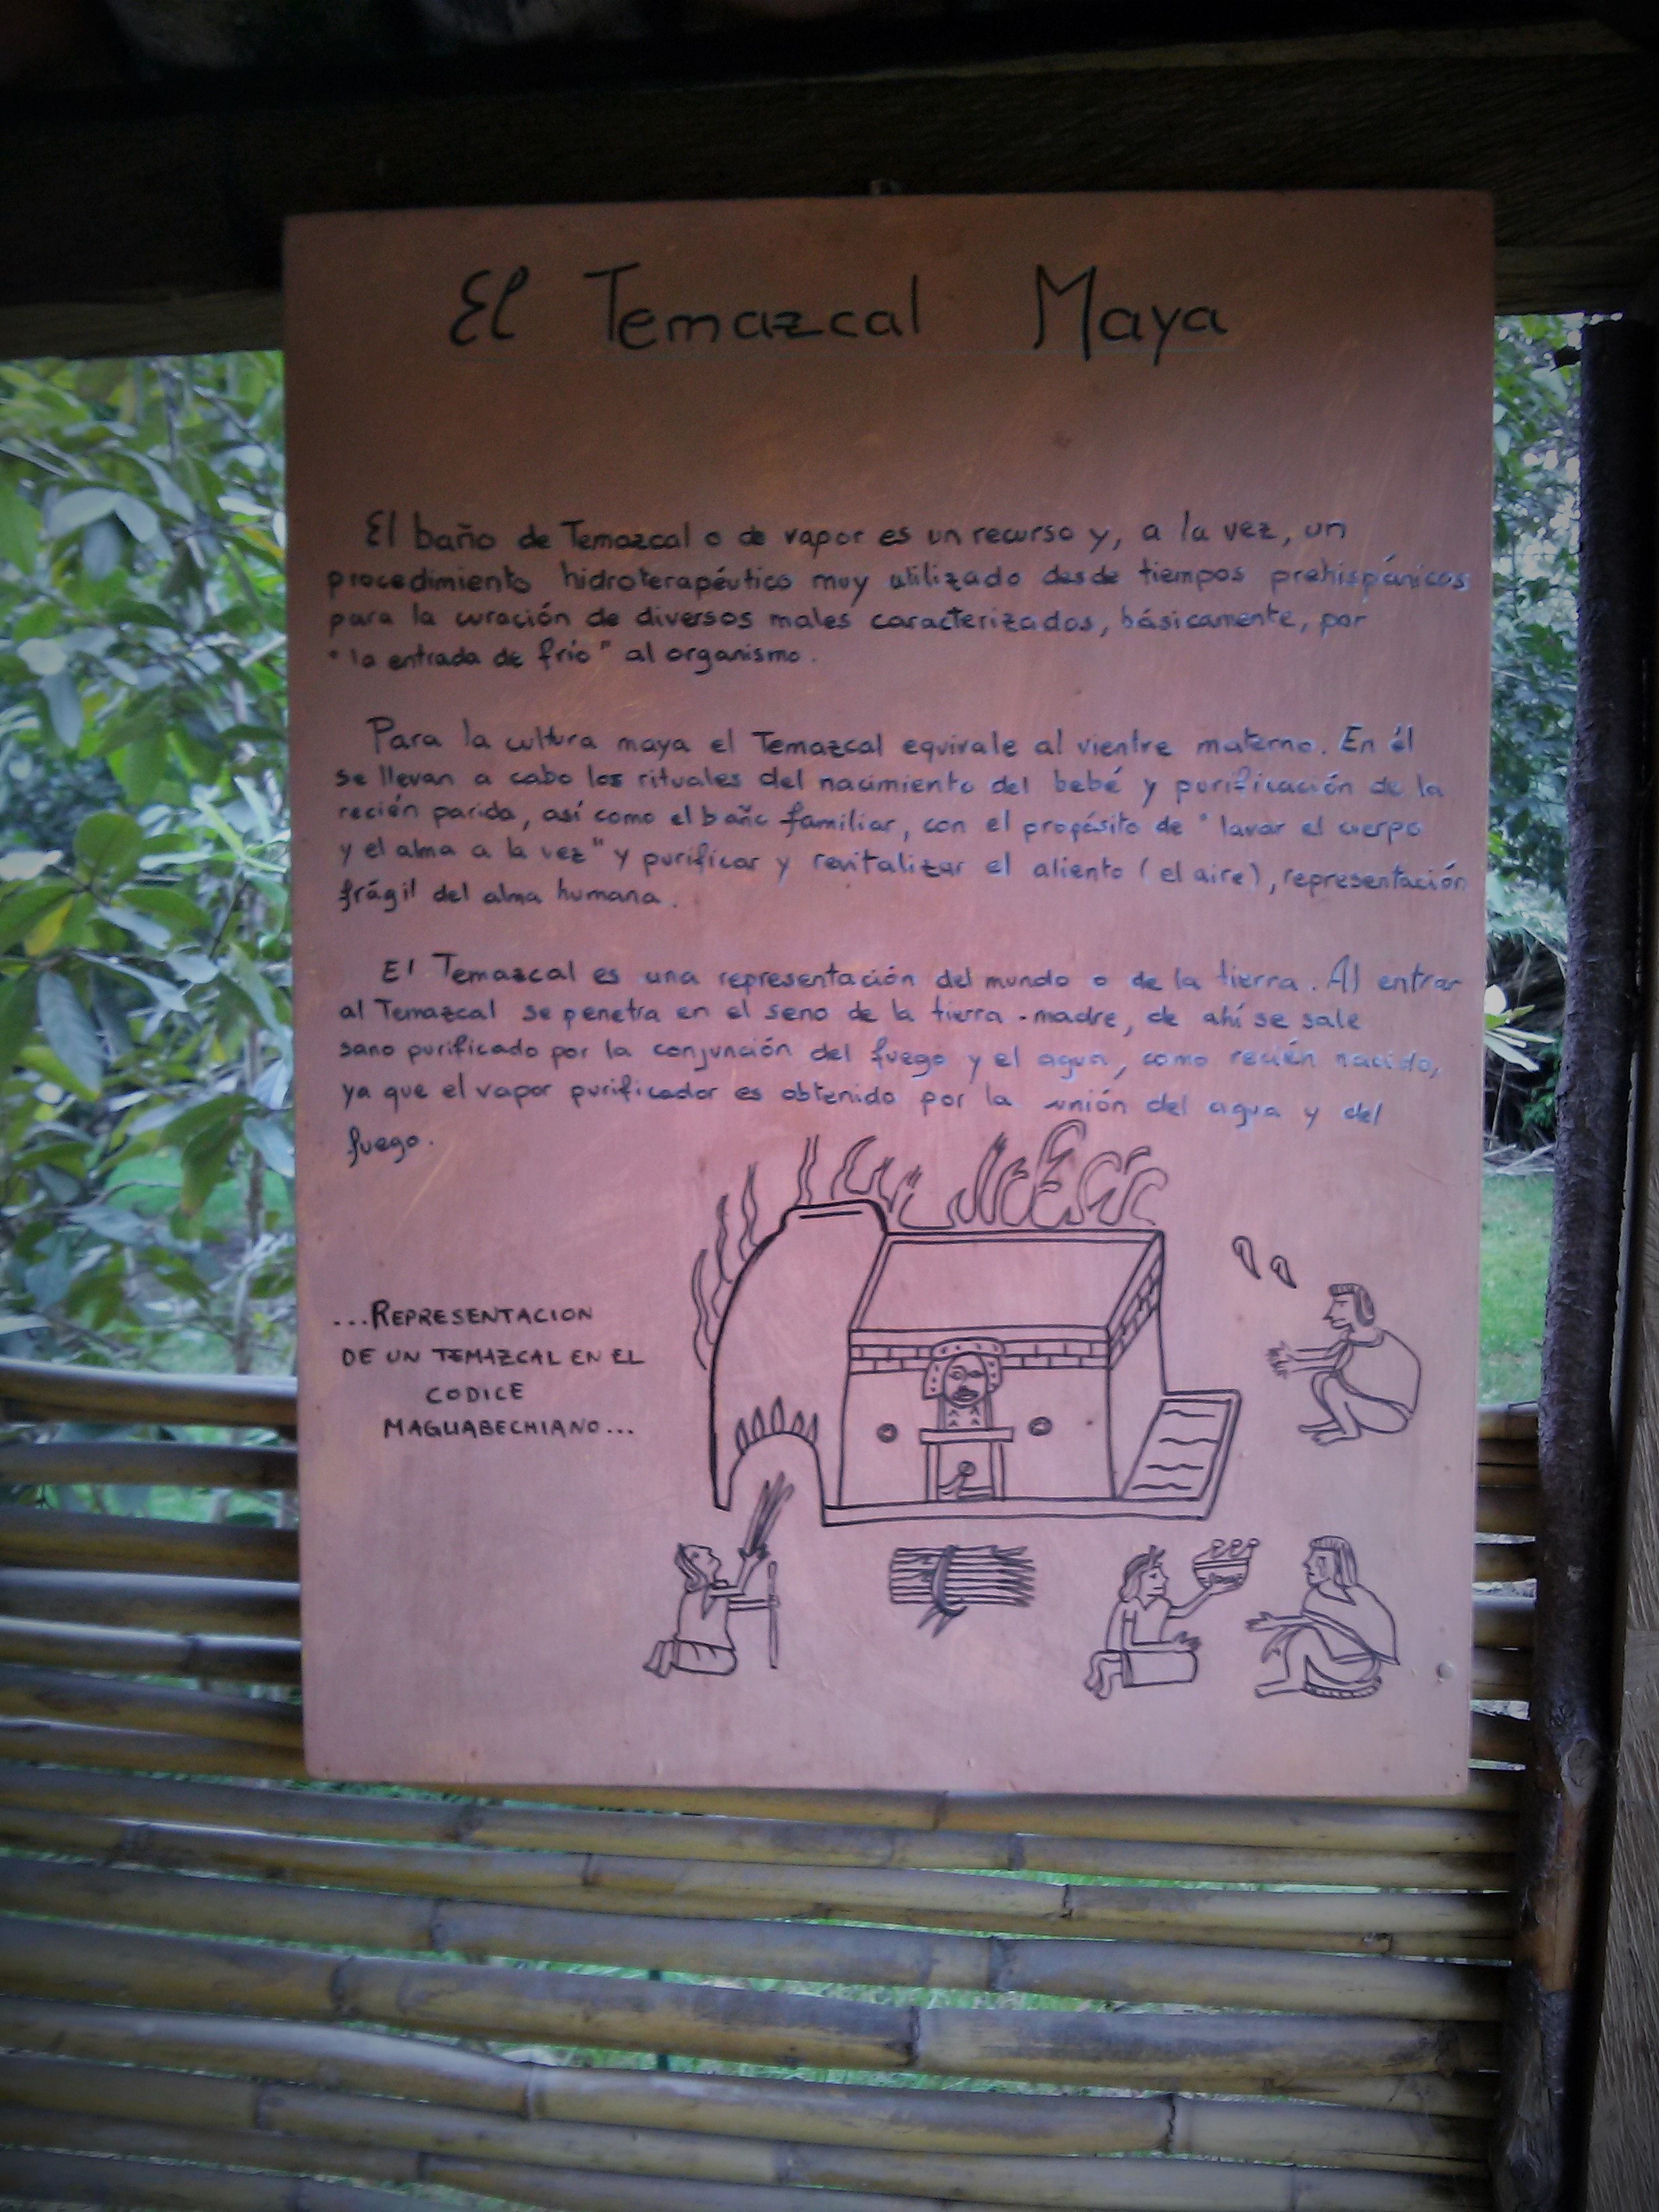 El Temazcal Maya
El baño de Temazcal o de vapor es un recurso y, a la vez, un
procedimiento hidroterapéutico muy utilizado desde tiempos prehispánicos
para la curación de diversos males caracterizados, básicamente, por
"la entrada de frío" al organismo.
Para la cultura maya el Temazcal equivale al vientre materno. En él
se llevan a cabo los rituales del nacimiento del bebé y purificación de la
recién parida, así como el baño familiar, con el propósito de "lavar el cuerpo
y el alma a la vez" y purificar y revitalizar el aliento (el aire), representación
frágil del alma humana.
El Temazcal es una representación del mundo o de la tierra. Al entrar
al Temazcal se penetra en el seno de la tierra-madre, de ahí se sale
sano purificado por la conjunción del fuego y el agua, como recién nacido,
ya que el vapor purificador es obtenido por la unión del agua y del
fuego.
...REPRESENTACION
DE UN TEMAZCAL EN EL
CODICE
MAGLIABECHIANO...